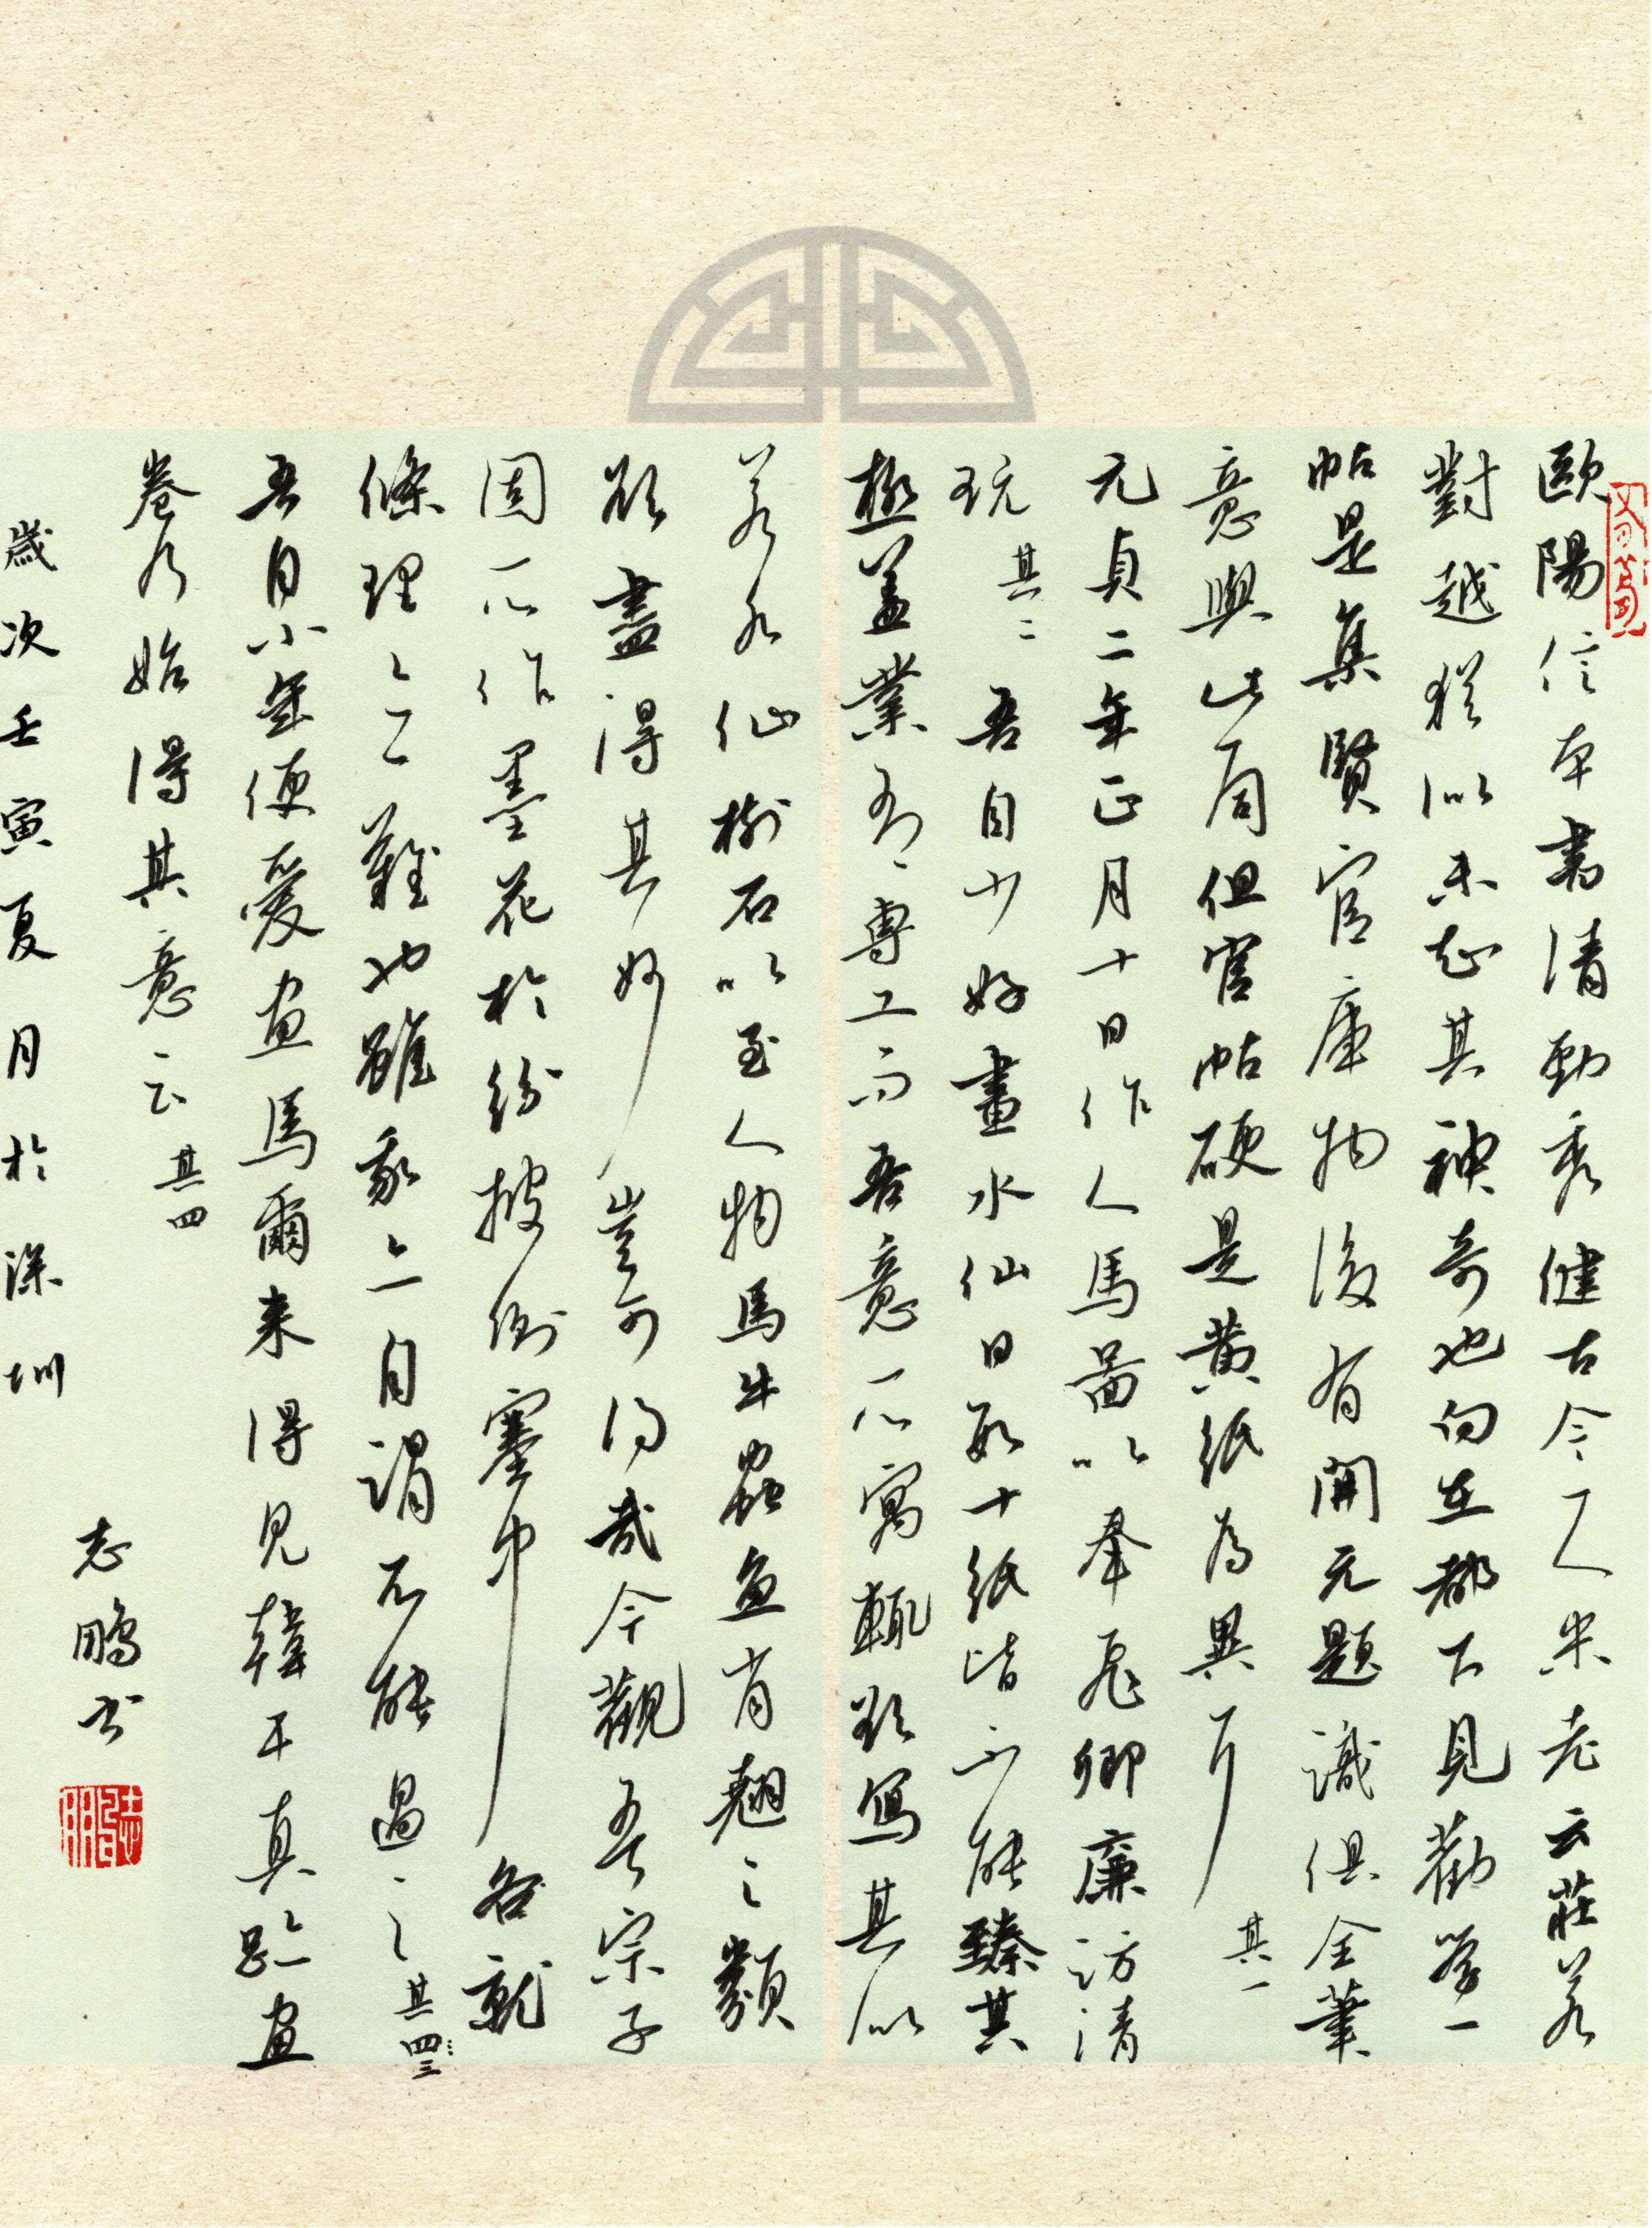 歐陽信本書清勁秀健古今一人米老云莊若
對越猶似未知其神奇也向在都下見勸學一
帖是集賢官庫物後有開元題識俱全筆
意與此同但官帖硬是黄紙為異耳其一
元貞二年正月十日作人馬圖以奉飛卿廉訪清
玩其二吾自少好畫水仙日數十紙皆不能臻其
極蓋業有專工而吾意所寓輒欲寫其似
若水仙樹石以至人物馬牛蟲魚肖翹之類
欲盡得其妙豈可得哉今觀吾宗子
固所作墨花於紛披側塞中各就
條理亦一難也雖我亦自謂不能過之其四三
吾自小年便愛畫馬爾来得見韓干真跡畫
卷乃始得其意云其四
歲次壬寅夏月於深圳
志鵬書